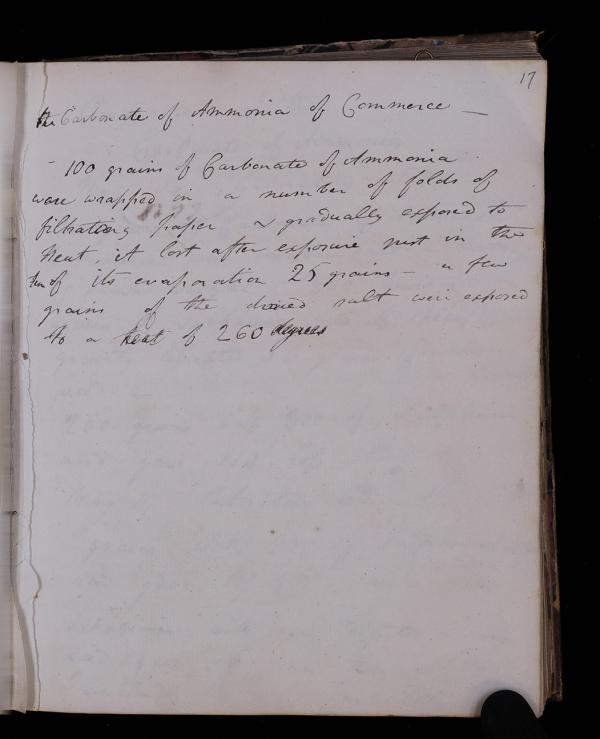 17
the Carbonate of Ammonia of Commerce —
- 100 grains of Carbonate of Ammonia
were wrapped in a number of folds of
filtrating paper & gradually exposed to
heat, it lost after exposure just in the
of its evaporation 25 grains - a few
grains of the dried salt were exposed
to a heat of 260 degrees